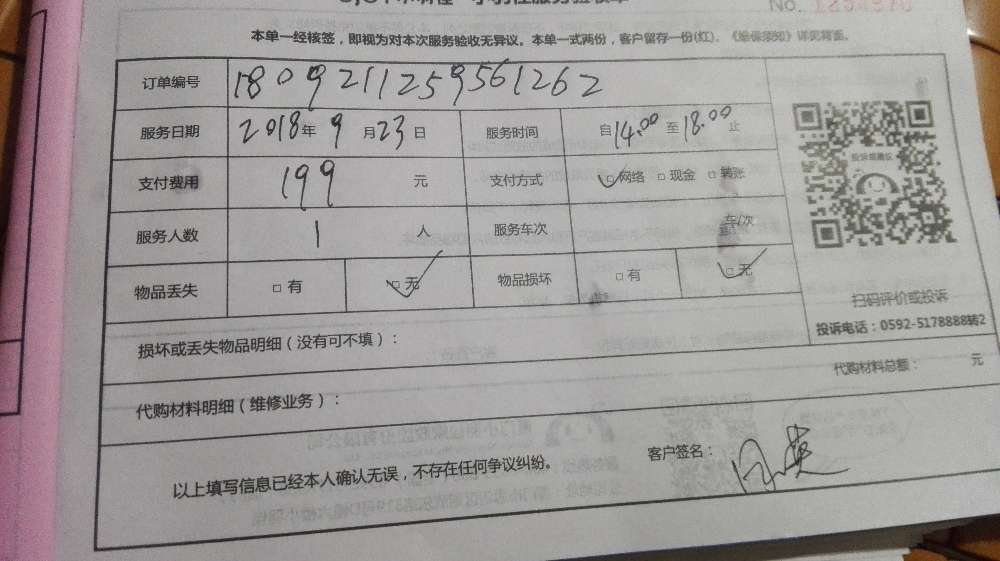 No. 1234370
本单一经核签，即视为对本次服务验收无异议。本单一式两份，客户留存一份(红)。《维保须知》详见背面。
订单编号 180921125956１262
服务日期 2018年 9 月 23 日 服务时间 自14.00 至 18.00 止
支付费用 199 元 支付方式 □网络 □现金 □转账
服务人数 1 人 服务车次 车/次
物品丢失 □有 □无 物品损坏 □有 □无
投诉或建议
扫码评价或投诉
投诉电话：0592-5178888转2
损坏或丢失物品明细（没有可不填）：
代购材料明细（维修业务）： 代购材料总额： 元
以上填写信息已经本人确认无误，不存在任何争议纠纷。 客户签名：